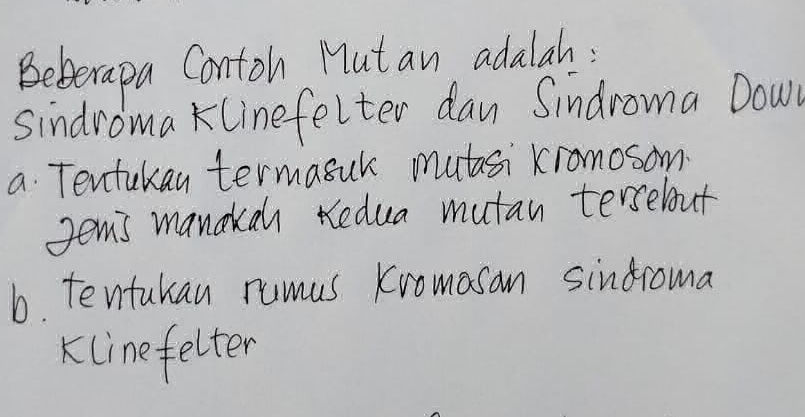 Beberapa Contoh Mutan adalah:
Sindroma Klinefelter dan Sindroma Down
a. Tentukan termasuk mutasi kromosom
jenis manakah kedua mutan tersebut
b. tentukan rumus kromosan sindroma
Klinefelter